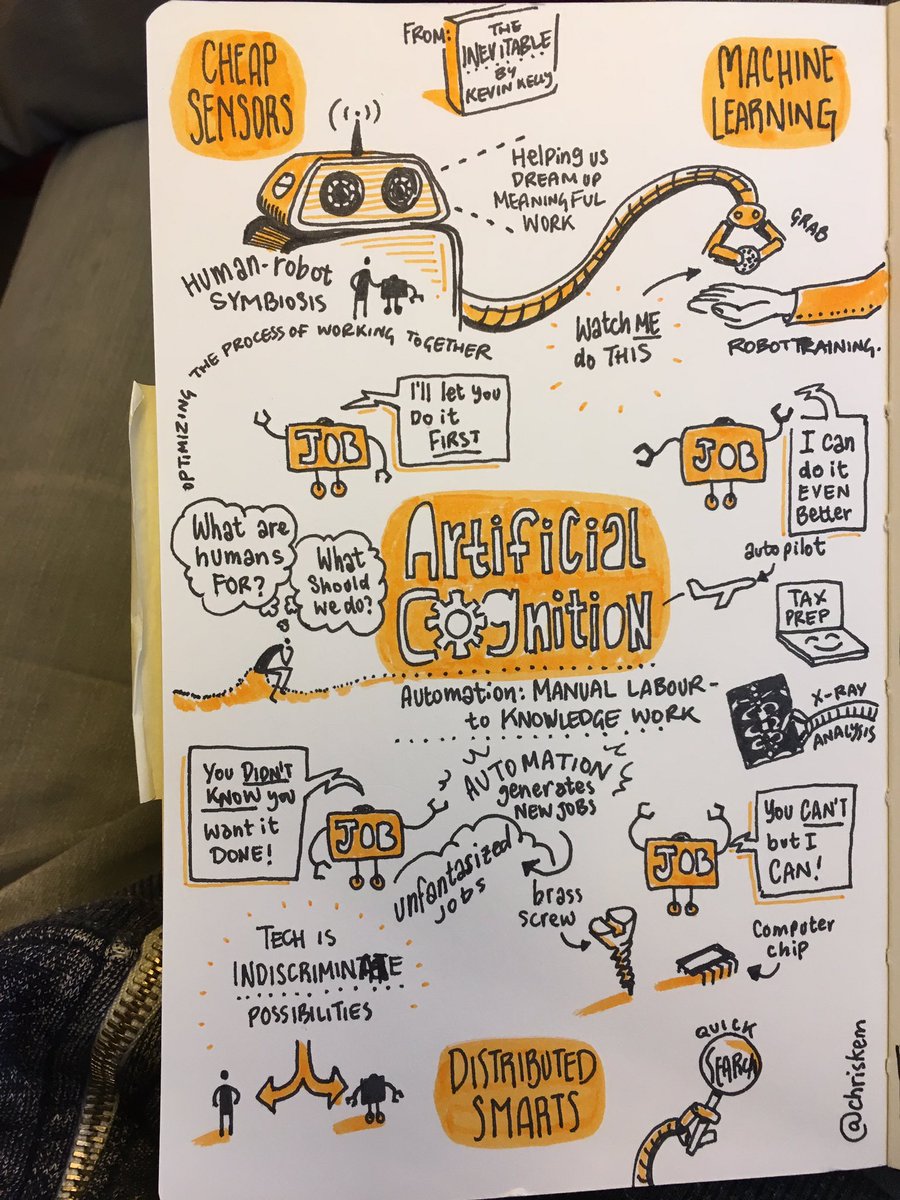 CHEAP
SENSORS
FROM:
THE
INEVITABLE
BY
KEVIN KELLY
MACHINE
LEARNING
Helping us
DREAM UP
MEANINGFUL
WORK
GRAB
Human-robot
SYMBIOSIS
OPTIMIZING THE PROCESS OF WORKING TOGETHER
Watch ME
do THIS
ROBOT TRAINING.
JOB
I'll let you
Do it
FIRST
JOB
I can
do it
EVEN
Better
What are
humans
FOR?
What
should
we do?
Artificial
Cognition
autopilot
TAX
PREP
X-RAY
ANALYSIS
Automation: MANUAL LABOUR-
to KNOWLEDGE WORK
You DIDN'T
KNOW you
want it
DONE!
JOB
AUTOMATION
generates
NEW JOBS
unfantasized
jobs
JOB
You CAN'T
but I
CAN!
brass
screw
Computer
chip
TECH IS
INDISCRIMINATE
POSSIBILITIES
DISTRIBUTED
SMARTS
QUICK
SEARCH
@chriskem